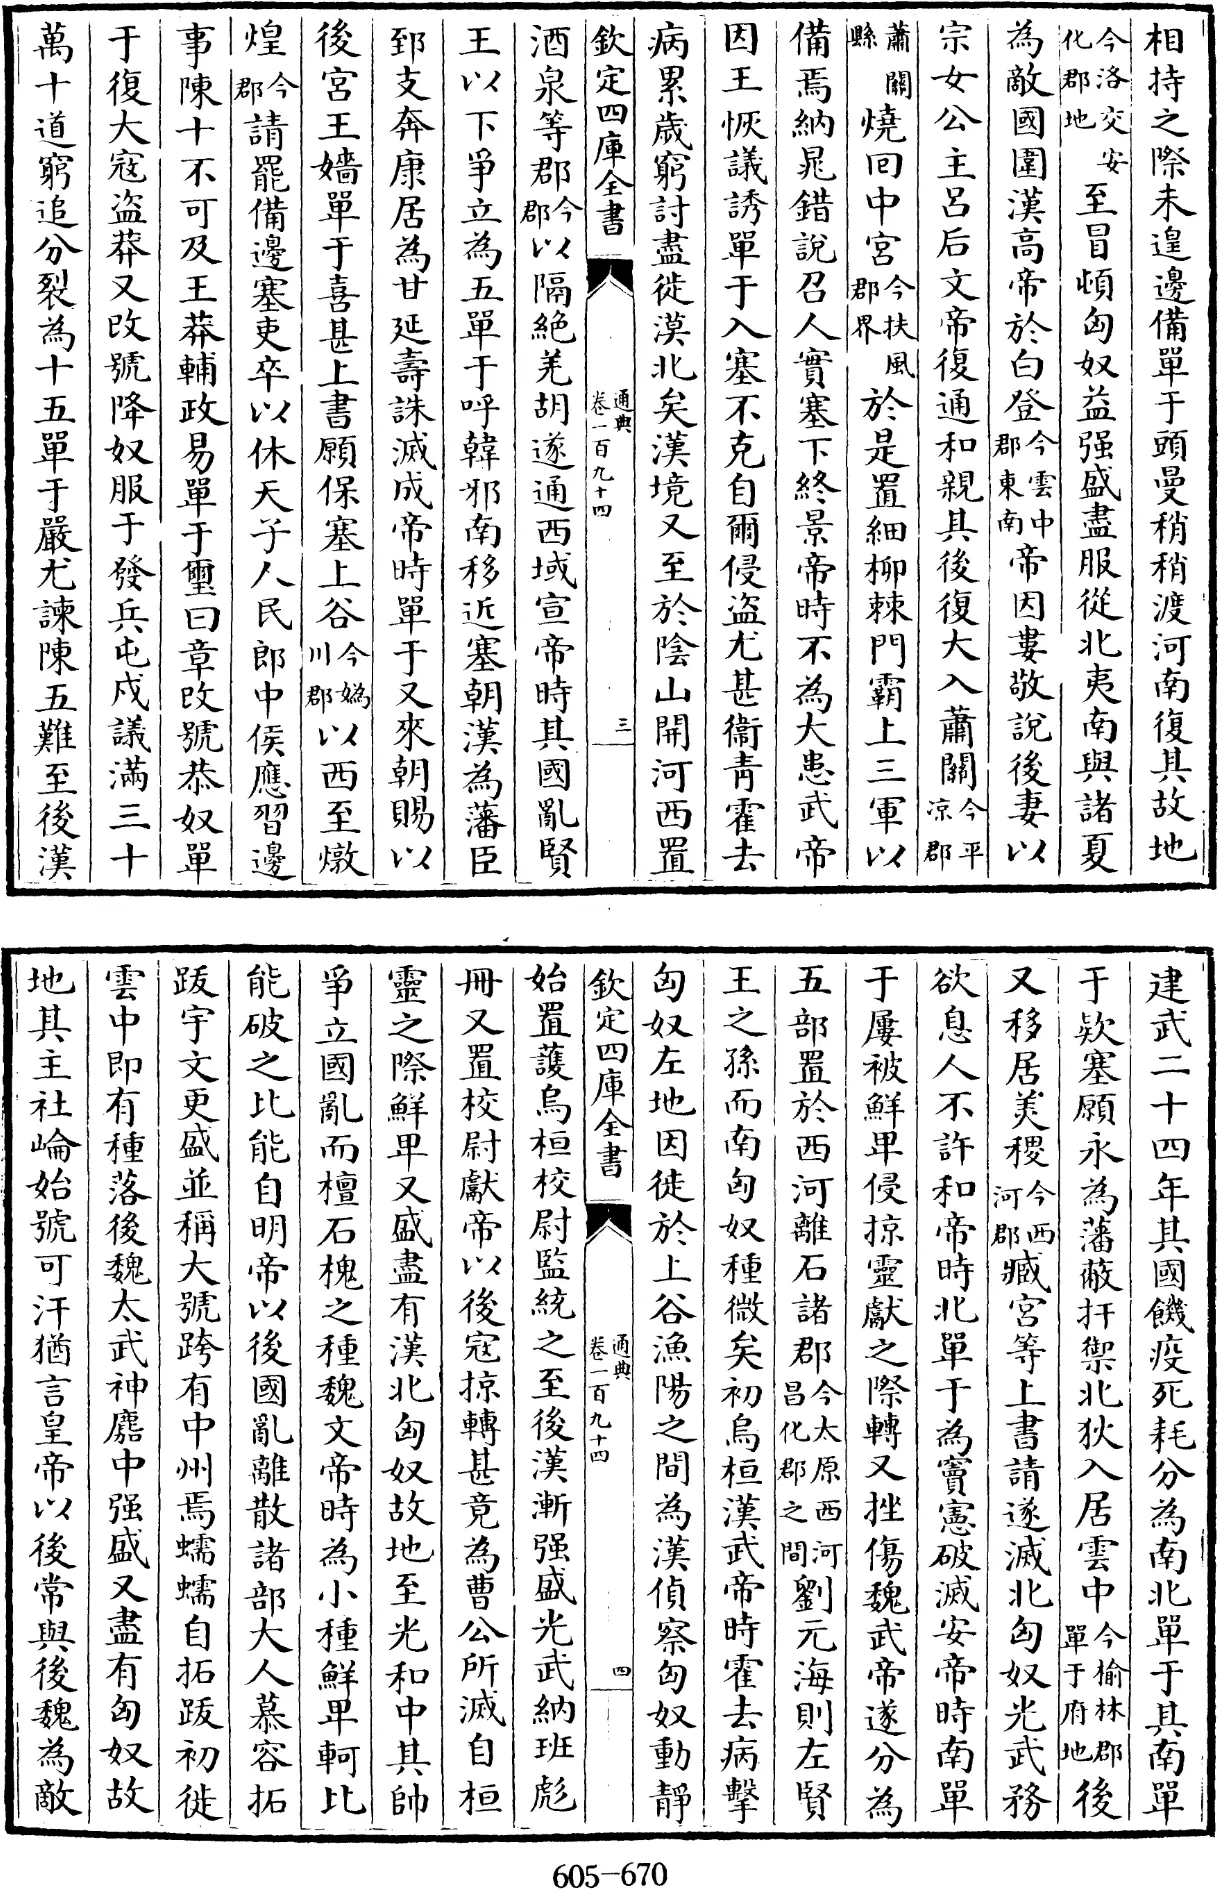 相持之際未遑邊備單于頭曼稍稍渡河南復其故地
今洛交安化郡地至冒頓匈奴益强盛盡服從北夷南與諸夏
為敵國圍漢高帝於白登今雲中郡東南帝因婁敬說後妻以
宗女公主呂后文帝復通和親其後復大入蕭關今平凉郡
蕭關縣燒回中宮今扶風郡界於是置細柳棘門霸上三軍以
備焉納晁錯說召人實塞下終景帝時不為大患武帝
因王恢議誘單于入塞不克自爾侵盜尤甚衞青霍去
病累歲窮討盡徙漠北矣漢境又至於陰山開河西置
欽定四庫全書
通典
卷一百九十四
三
酒泉等郡今郡以隔絶羌胡遂通西域宣帝時其國亂賢
王以下爭立為五單于呼韓邪南移近塞朝漢為藩臣
郅支奔康居為甘延壽誅滅成帝時單于又來朝賜以
後宮王嬙單于喜甚上書願保塞上谷今媯川郡以西至燉
煌今郡請罷備邊塞吏卒以休天子人民郎中侯應習邊
事陳十不可及王莽輔政易單于璽曰章改號恭奴單
于復大寇盜莽又改號降奴服于發兵屯戍議滿三十
萬十道窮追分裂為十五單于嚴尤諫陳五難至後漢
建武二十四年其國饑疫死耗分為南北單于其南單
于欵塞願永為藩蔽扞禦北狄入居雲中今榆林郡單于府地後
又移居美稷今西河郡臧宮等上書請遂滅北匈奴光武務
欲息人不許和帝時北單于為竇憲破滅安帝時南單
于屢被鮮卑侵掠靈獻之際轉又挫傷魏武帝遂分為
五部置於西河離石諸郡今太原西河昌化郡之間劉元海則左賢
王之孫而南匈奴種微矣初烏桓漢武帝時霍去病擊
匈奴左地因徙於上谷漁陽之間為漢偵察匈奴動靜
欽定四庫全書
通典
卷一百九十四
四
始置護烏桓校尉監統之至後漢漸强盛光武納班彪
冊又置校尉獻帝以後寇掠轉甚竟為曹公所滅自桓
靈之際鮮卑又盛盡有漢北匈奴故地至光和中其帥
爭立國亂而檀石槐之種魏文帝時為小種鮮卑軻比
能破之比能自明帝以後國亂離散諸部大人慕容拓
跋宇文更盛並稱大號跨有中州焉蠕蠕自拓跋初徙
雲中即有種落後魏太武神䴥中强盛又盡有匈奴故
地其主社崘始號可汗猶言皇帝以後常與後魏為敵
605-670